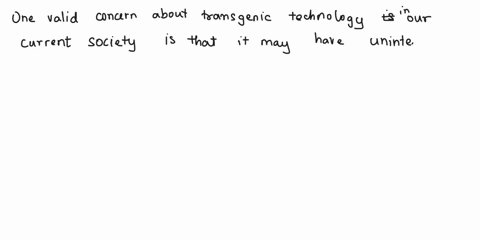 One valid concern about transgenic technology in our
current society is that it may have uninte